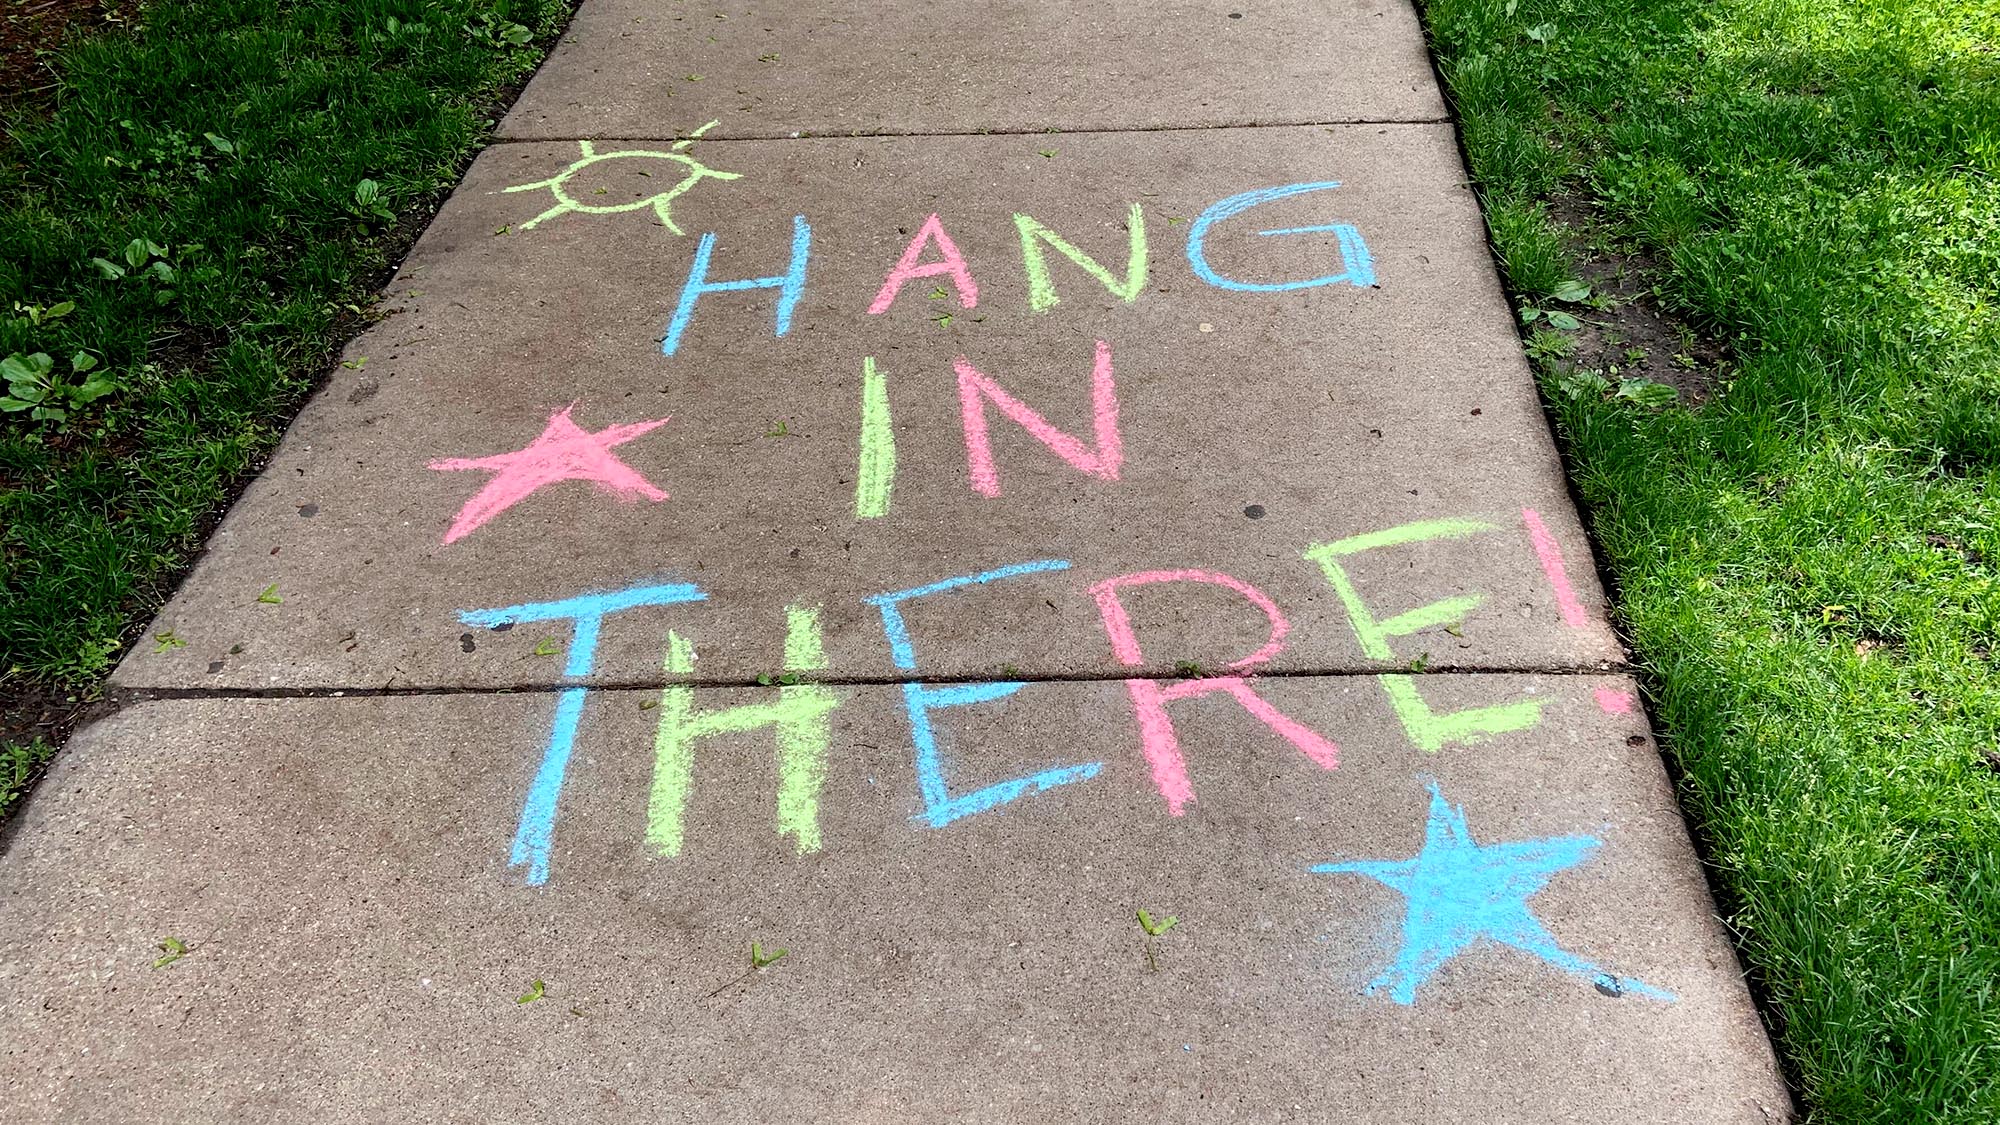 HANG
IN
THERE!